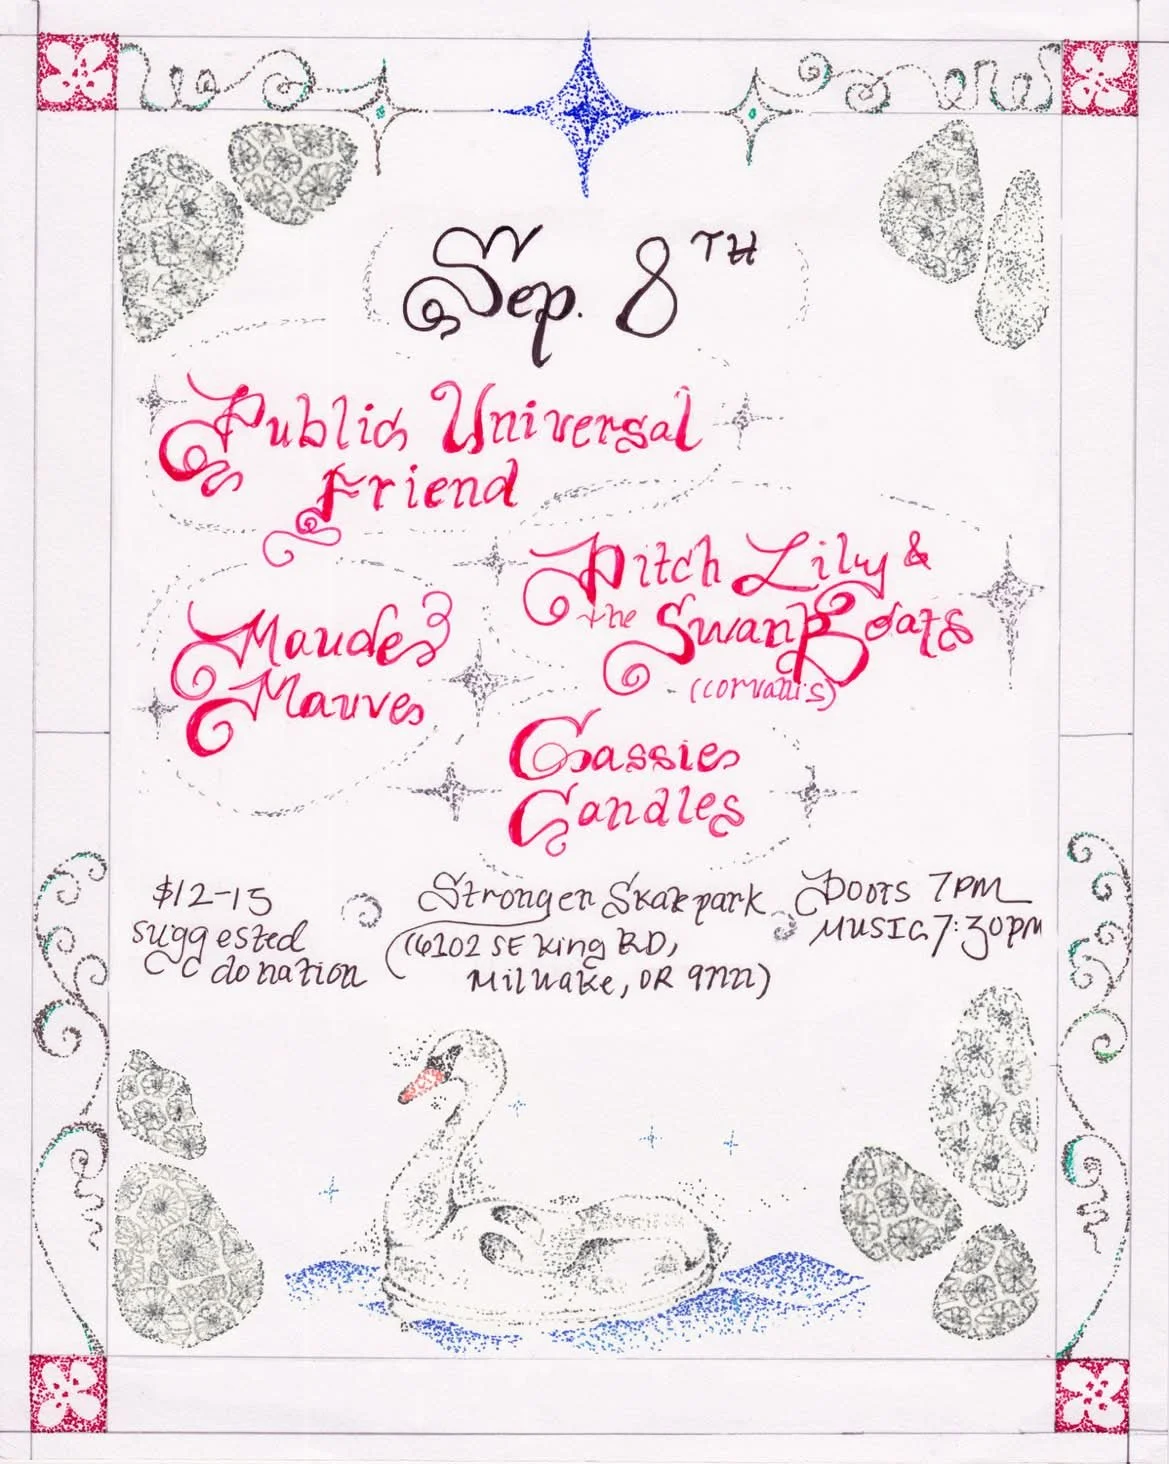 Sep. 8TH
Public Universal
Friend
Pitch Lily &
the SwanBoats
(corvallis)
Maude
Mauve
Cassie
Candles
$12-15
suggested
donation
Stronger Skatepark
(6202 SE King RD,
Milwakie, OR 97222)
Doors 7PM
MUSIC 7:30PM